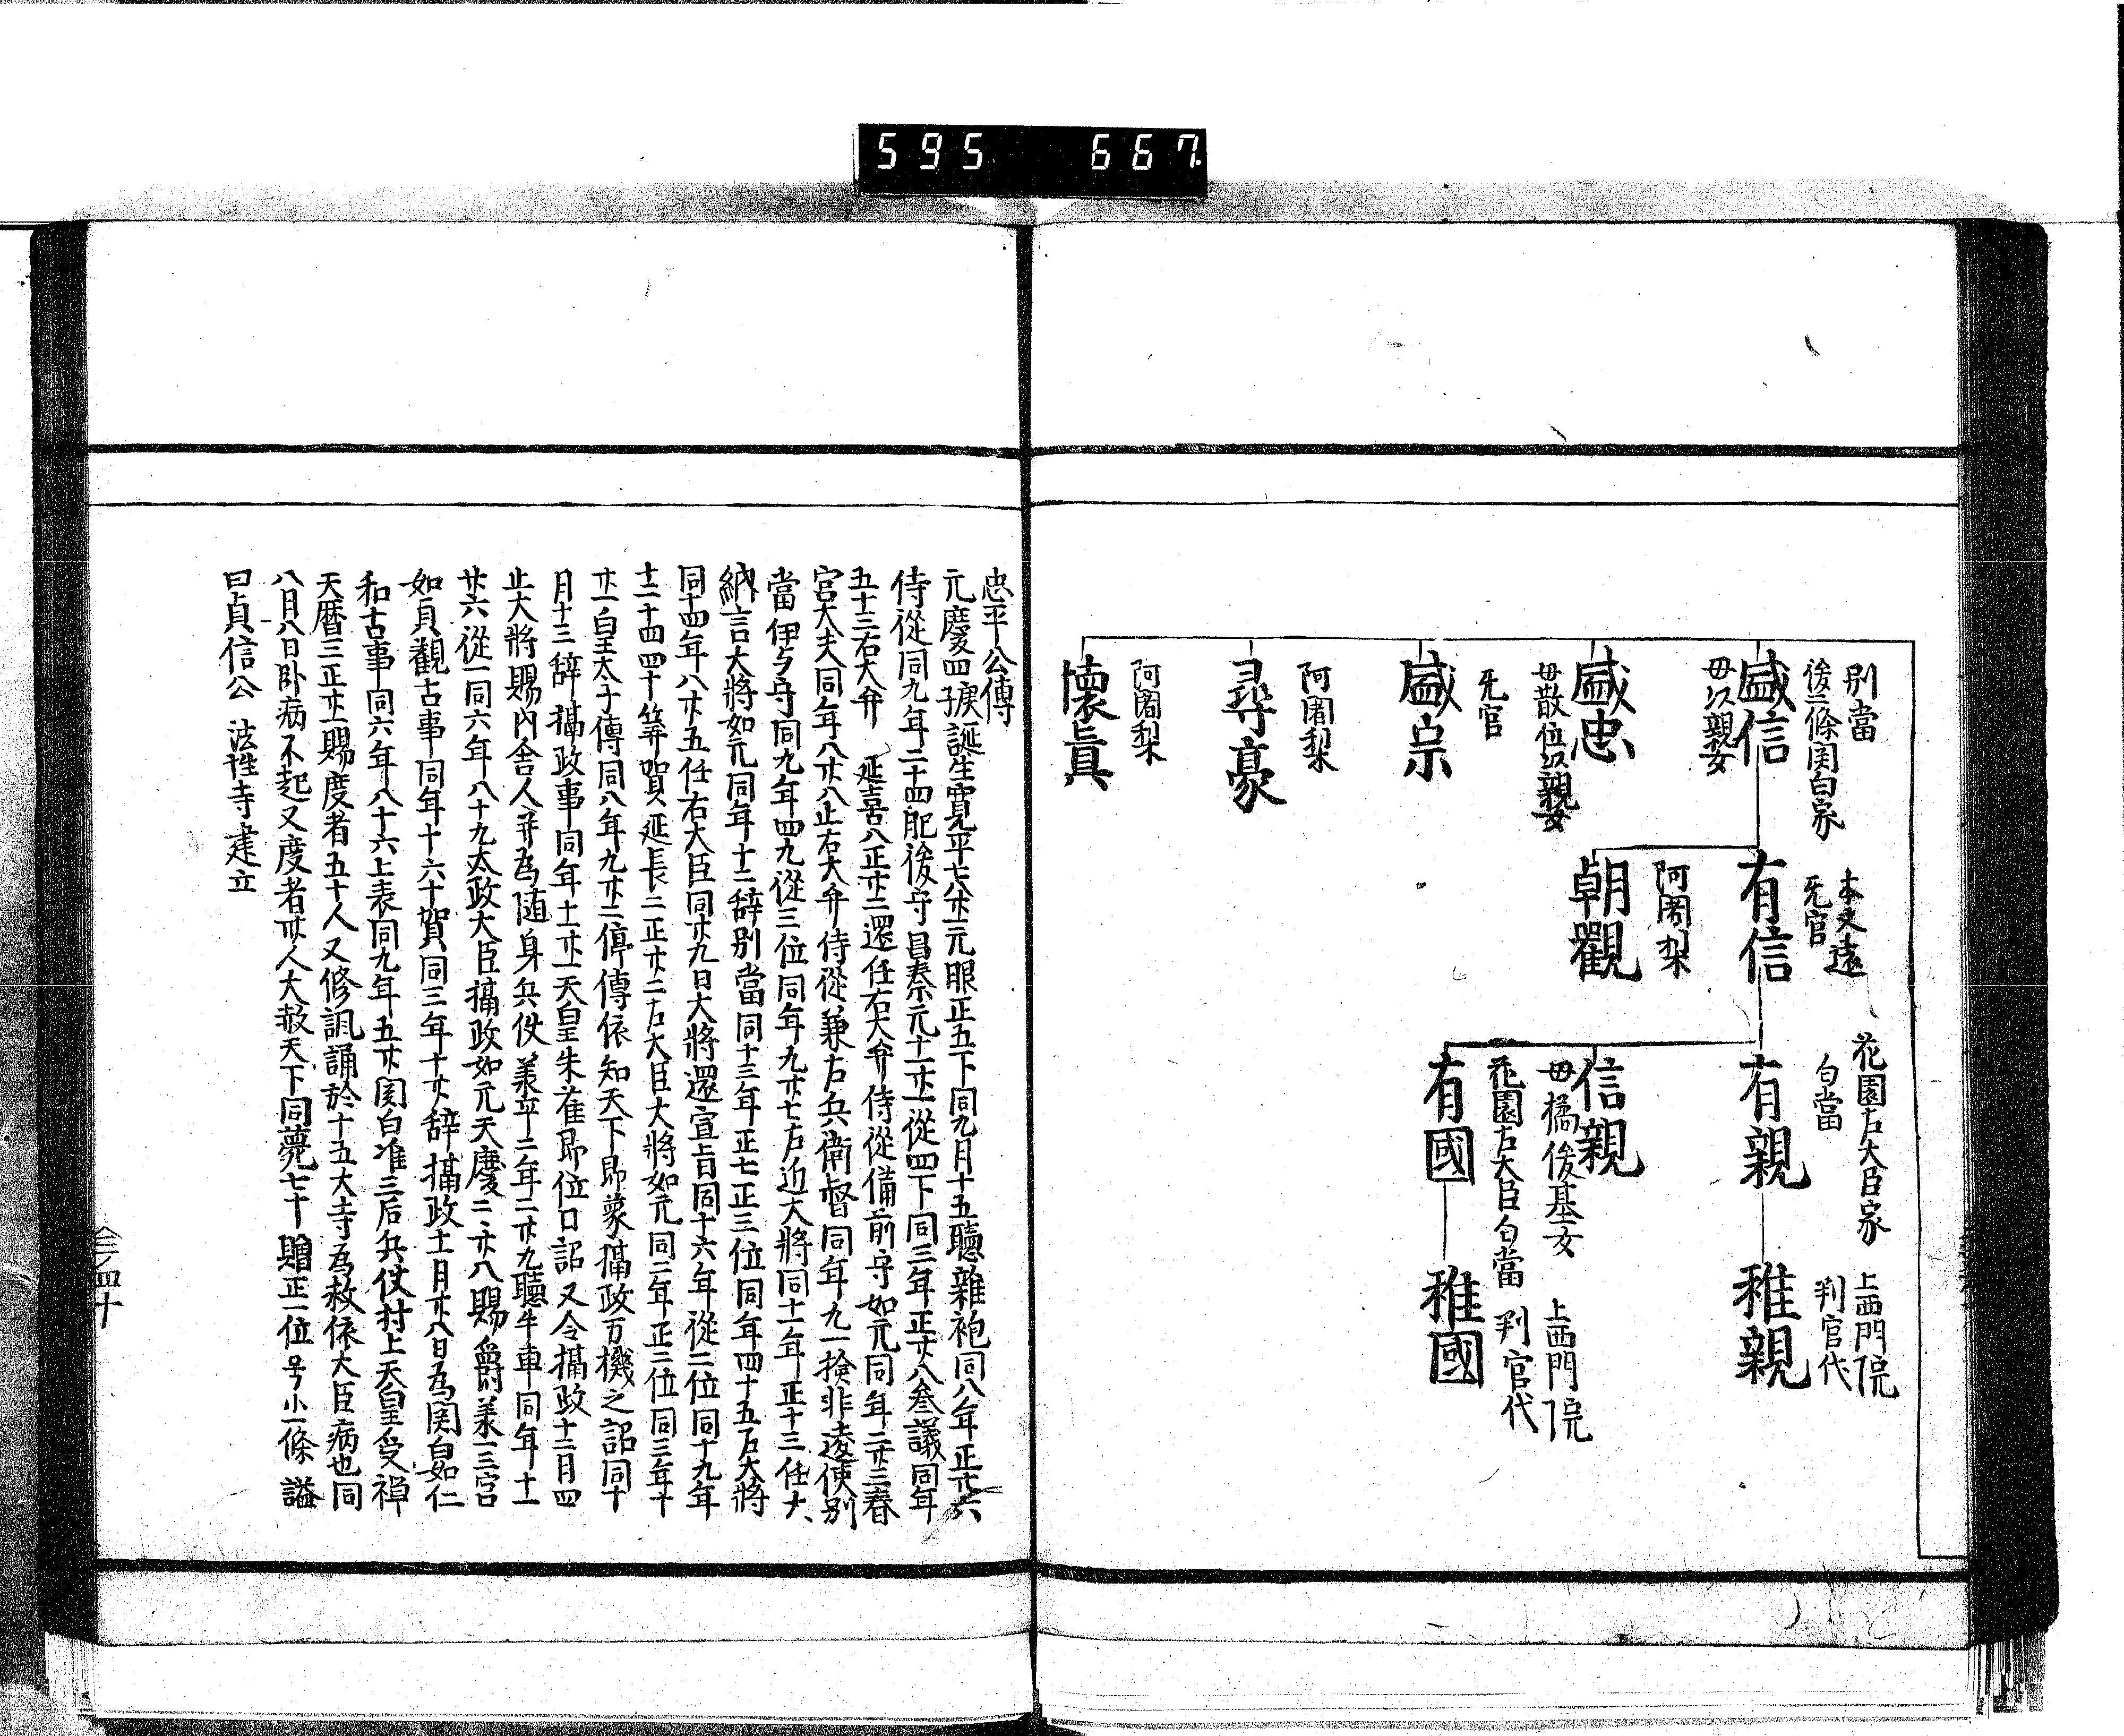 595 667
別當
後二條関白家
盛信
母以親女
盛忠
母散位以親女
无官
盛宗
阿闍梨
尋豪
阿闍梨
懐眞
本文遠
无官
有信
阿闍梨
朝觀
花園左大臣家
勾當
有親
信親
母橘俊基女
花園左大臣勾當
有國
上西門院
判官代
稚親
上西門院
判官代
稚國
忠平公傳
元慶四庚子誕生寛平七八廿一元服正五下同九月十五聽雜袍同八年正廿六
侍從同九年二十四肥後守昌泰元十一廿一從四下同三年正廿八叅議同年
五十三右大弁 延喜八正廿二還任右大弁侍從備前守如元同年二廿三春
宮大夫同年八廿八止右大弁侍從兼左兵衛督同年九一撿非違使別
當伊与守同九年四九從三位同年九廿七右近大將同十一年正十三任大
納言大將如元同年十二辞別當同十三年正七正三位同年四十五左大將
同十四年八廿五任右大臣同廿九日大將還宣旨同十六年從二位同十九年
十二十四四十筭賀延長二正廿二左大臣大將如元同二年正二位同三年十
廿一皇太子傅同八年九廿二停傅依知天下即蒙攝政万機之詔同十
月十三辞攝政事同年十一廿一天皇朱雀即位日詔又令攝政十二月四
止大將賜内舎人并為随身兵仗兼平二年二廿九聽牛車同年十一
廿六從一同六年八十九太政大臣攝政如元天慶二二廿八賜爵兼三宮
如貞觀古事同年十六十賀同三年十廿辞攝政十一月廿八日為関白如仁
和古事同六年八十六上表同九年五廿関白准三后兵仗村上天皇受禅
天暦三正廿一賜度者五十人又修諷誦於十五大寺為救依大臣病也同
八月八日卧病不起又度者卅人大赦天下同薨七十 贈正一位 号小一條 謚
曰貞信公 法性寺建立
三ノ四十